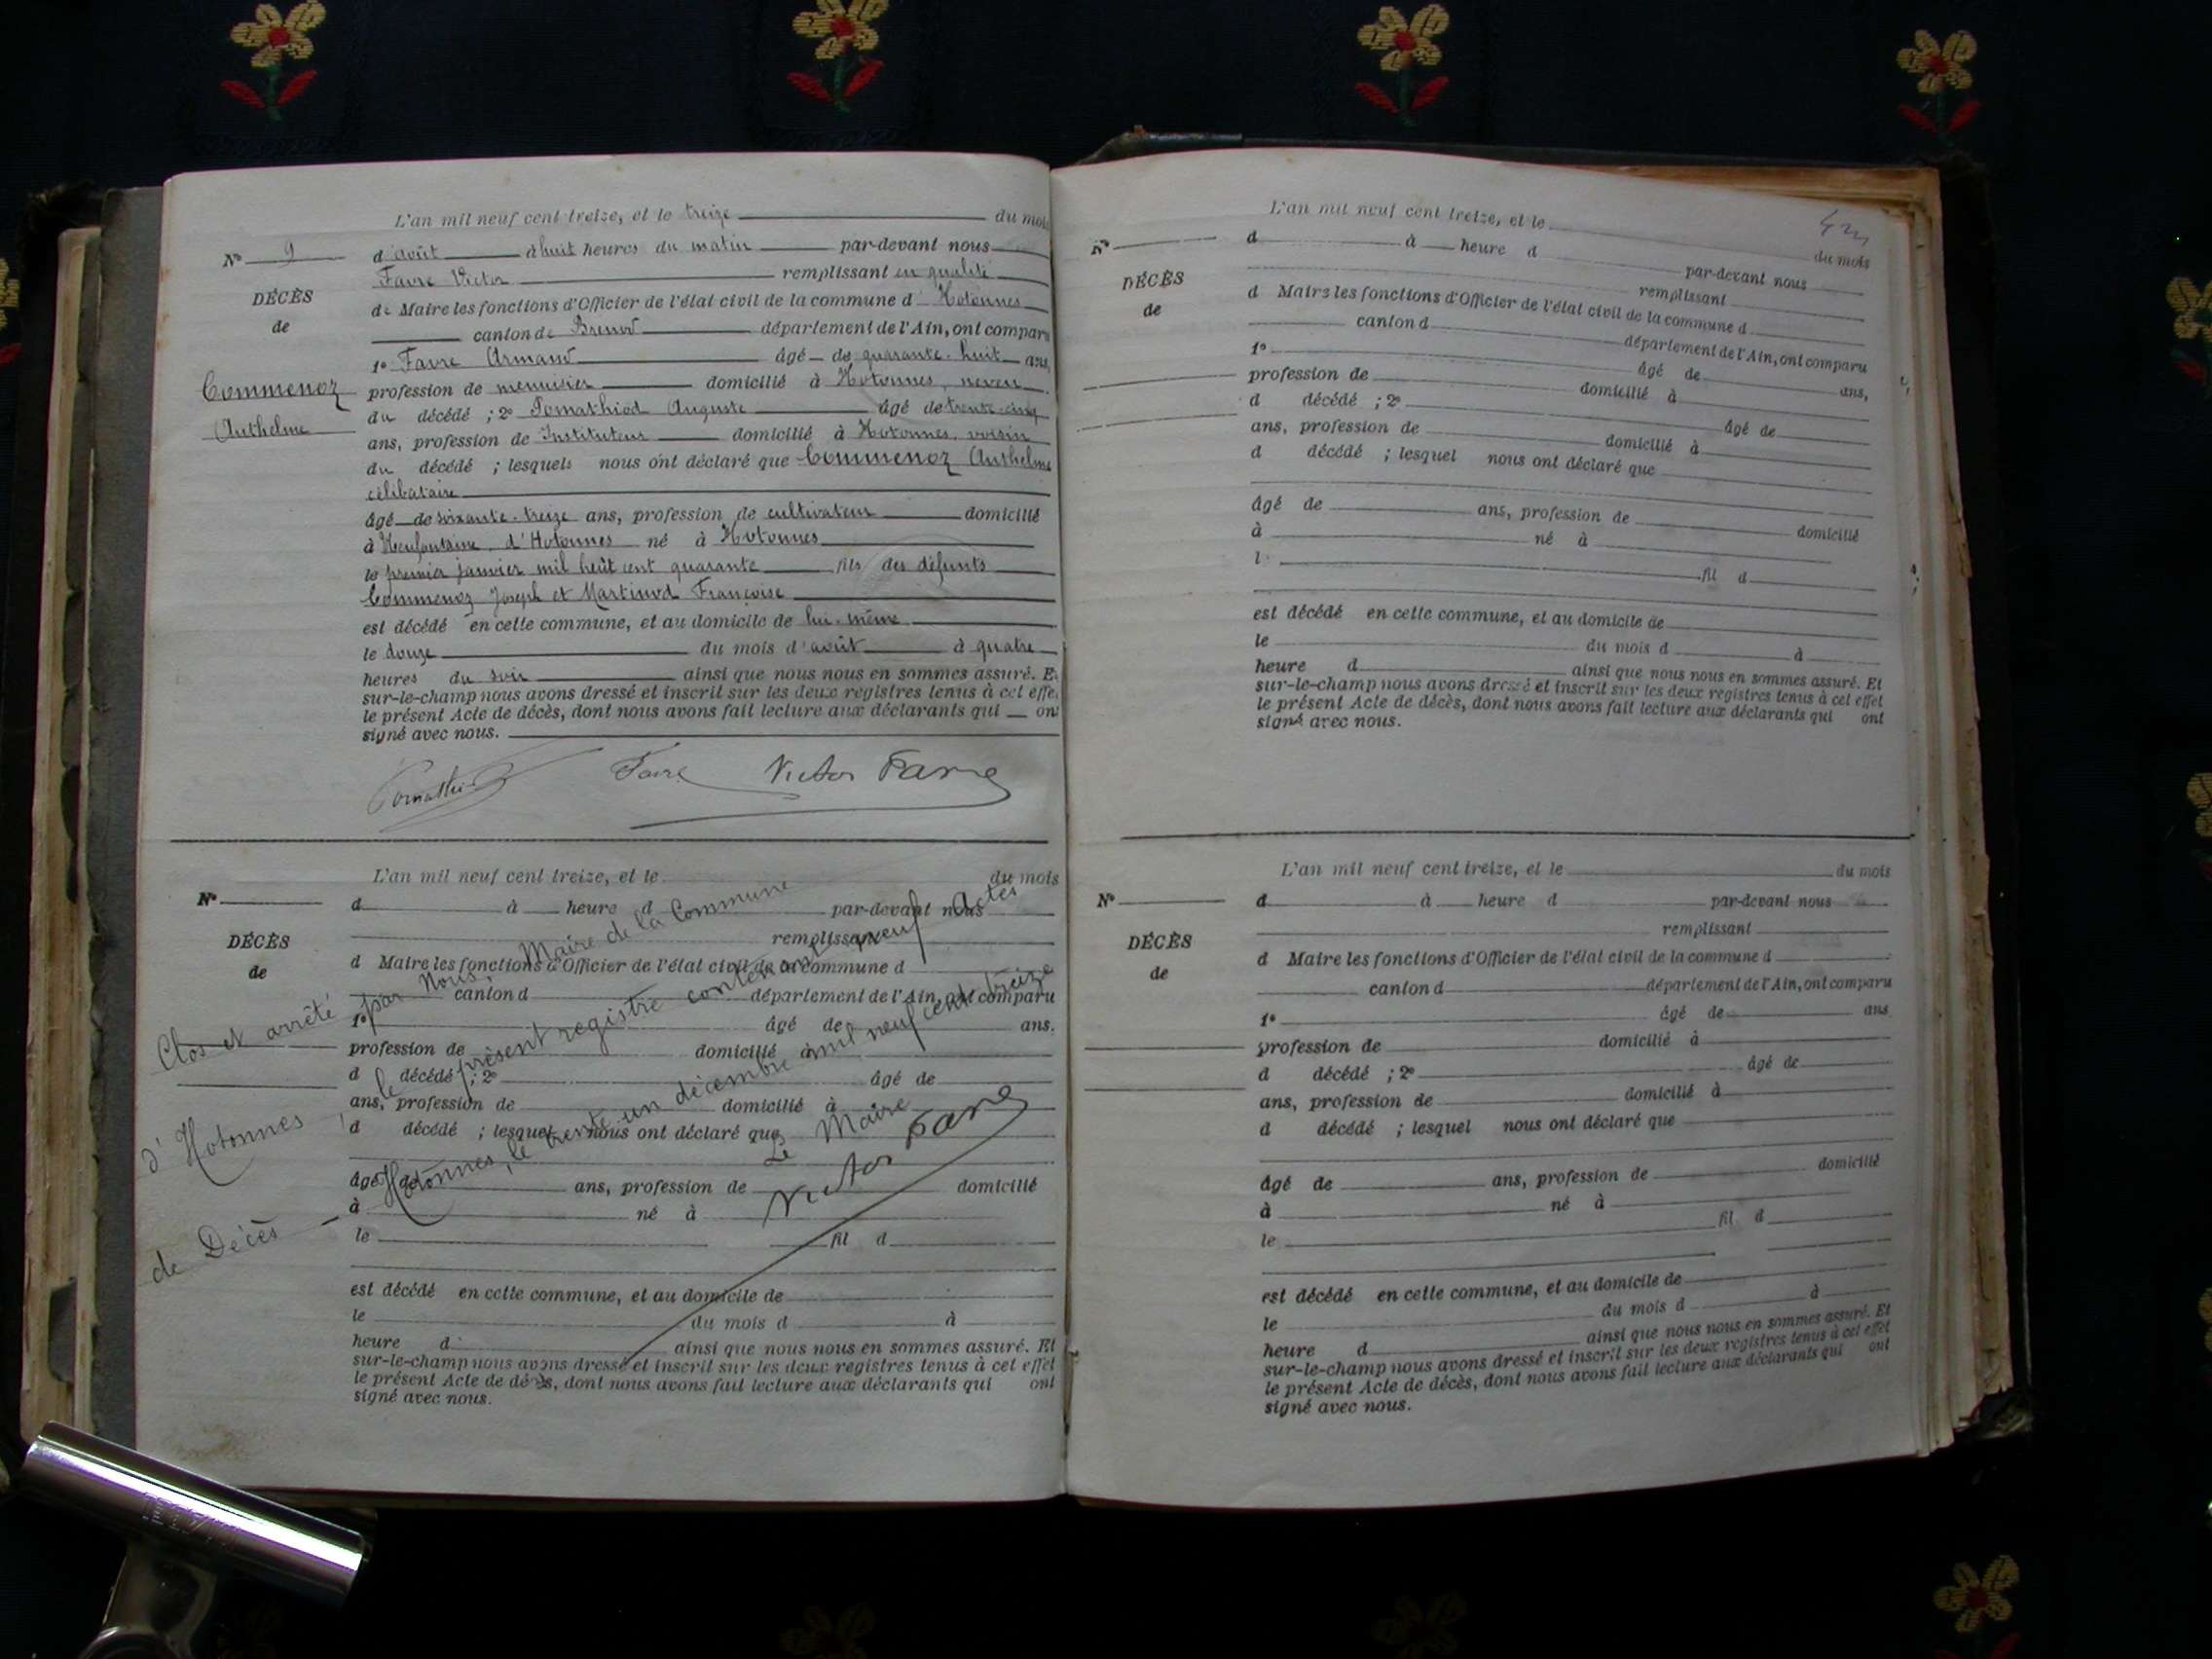 L'an mil neuf cent treize, et le treize du mois
N° 9
d'août à huit heures du matin par-devant nous
Favre Victor remplissant en qualité
DÉCÈS
de Maire les fonctions d'Officier de l'état civil de la commune d'Hotonnes
de
canton de Brénod département de l'Ain, ont comparu
1° Favre Armand âgé de quarante-huit ans,
Commenoz
profession de menuisier domicilié à Hotonnes, neveu
du décédé ; 2° Pomathiod Auguste âgé de trente-cinq
Anthelme
ans, profession de Instituteur domicilié à Hotonnes, voisin
du décédé ; lesquels nous ont déclaré que Commenoz Anthelme
célibataire
âgé de soixante-treize ans, profession de cultivateur domicilié
à d'Hotonnes né à Hotonnes
le premier janvier mil huit cent quarante fils des défunts
Commenoz Joseph et Martinod Françoise
est décédé en cette commune, et au domicile de lui-même
le douze du mois d'août à quatre
heures du soir ainsi que nous nous en sommes assuré. Et
sur-le-champ nous avons dressé et inscrit sur les deux registres tenus à cet effet
le présent Acte de décès, dont nous avons fait lecture aux déclarants qui ont
signé avec nous.
Favre Victor Favre
L'an mil neuf cent treize, et le du mois
N°
d à heure d par-devant nous
remplissant
DÉCÈS
d Maire les fonctions d'Officier de l'état civil de la commune d
de
canton d département de l'Ain, ont comparu
1° âgé de ans.
profession de domicilié à
d décédé ; 2° âgé de
ans, profession de domicilié à
d décédé ; lesquel nous ont déclaré que
âgé de ans, profession de domicilié
à né à
le fil d
est décédé en cette commune, et au domicile de
le du mois d à
heure d ainsi que nous nous en sommes assuré. Et
sur-le-champ nous avons dressé et inscrit sur les deux registres tenus à cet effet
le présent Acte de décès, dont nous avons fait lecture aux déclarants qui ont
signé avec nous.
Clos et arrêté par Nous Maire de la Commune
d'Hotonnes, le présent registre contenant neuf Actes
de Décès - Hotonnes, le trente-un décembre mil neuf cent treize
Le Maire
Victor Favre
L'an mil neuf cent treize, et le du mois
N°
d à heure d par-devant nous
remplissant
DÉCÈS
d Maire les fonctions d'Officier de l'état civil de la commune d
de
canton d département de l'Ain, ont comparu
1° âgé de ans,
profession de domicilié à
d décédé ; 2° âgé de
ans, profession de domicilié à
d décédé ; lesquel nous ont déclaré que
âgé de ans, profession de domicilié
à né à
l fil d
est décédé en cette commune, et au domicile de
le du mois d à
heure d ainsi que nous nous en sommes assuré. Et
sur-le-champ nous avons dressé et inscrit sur les deux registres tenus à cet effet
le présent Acte de décès, dont nous avons fait lecture aux déclarants qui ont
signé avec nous.
L'an mil neuf cent treize, et le du mois
N°
d à heure d par-devant nous
remplissant
DÉCÈS
d Maire les fonctions d'Officier de l'état civil de la commune d
de
canton d département de l'Ain, ont comparu
1° âgé de ans
profession de domicilié à
d décédé ; 2° âgé de
ans, profession de domicilié à
d décédé ; lesquel nous ont déclaré que
âgé de ans, profession de domicilié
à né à
le fil d
est décédé en cette commune, et au domicile de
le du mois d à
heure d ainsi que nous nous en sommes assuré. Et
sur-le-champ nous avons dressé et inscrit sur les deux registres tenus à cet effet
le présent Acte de décès, dont nous avons fait lecture aux déclarants qui ont
signé avec nous.